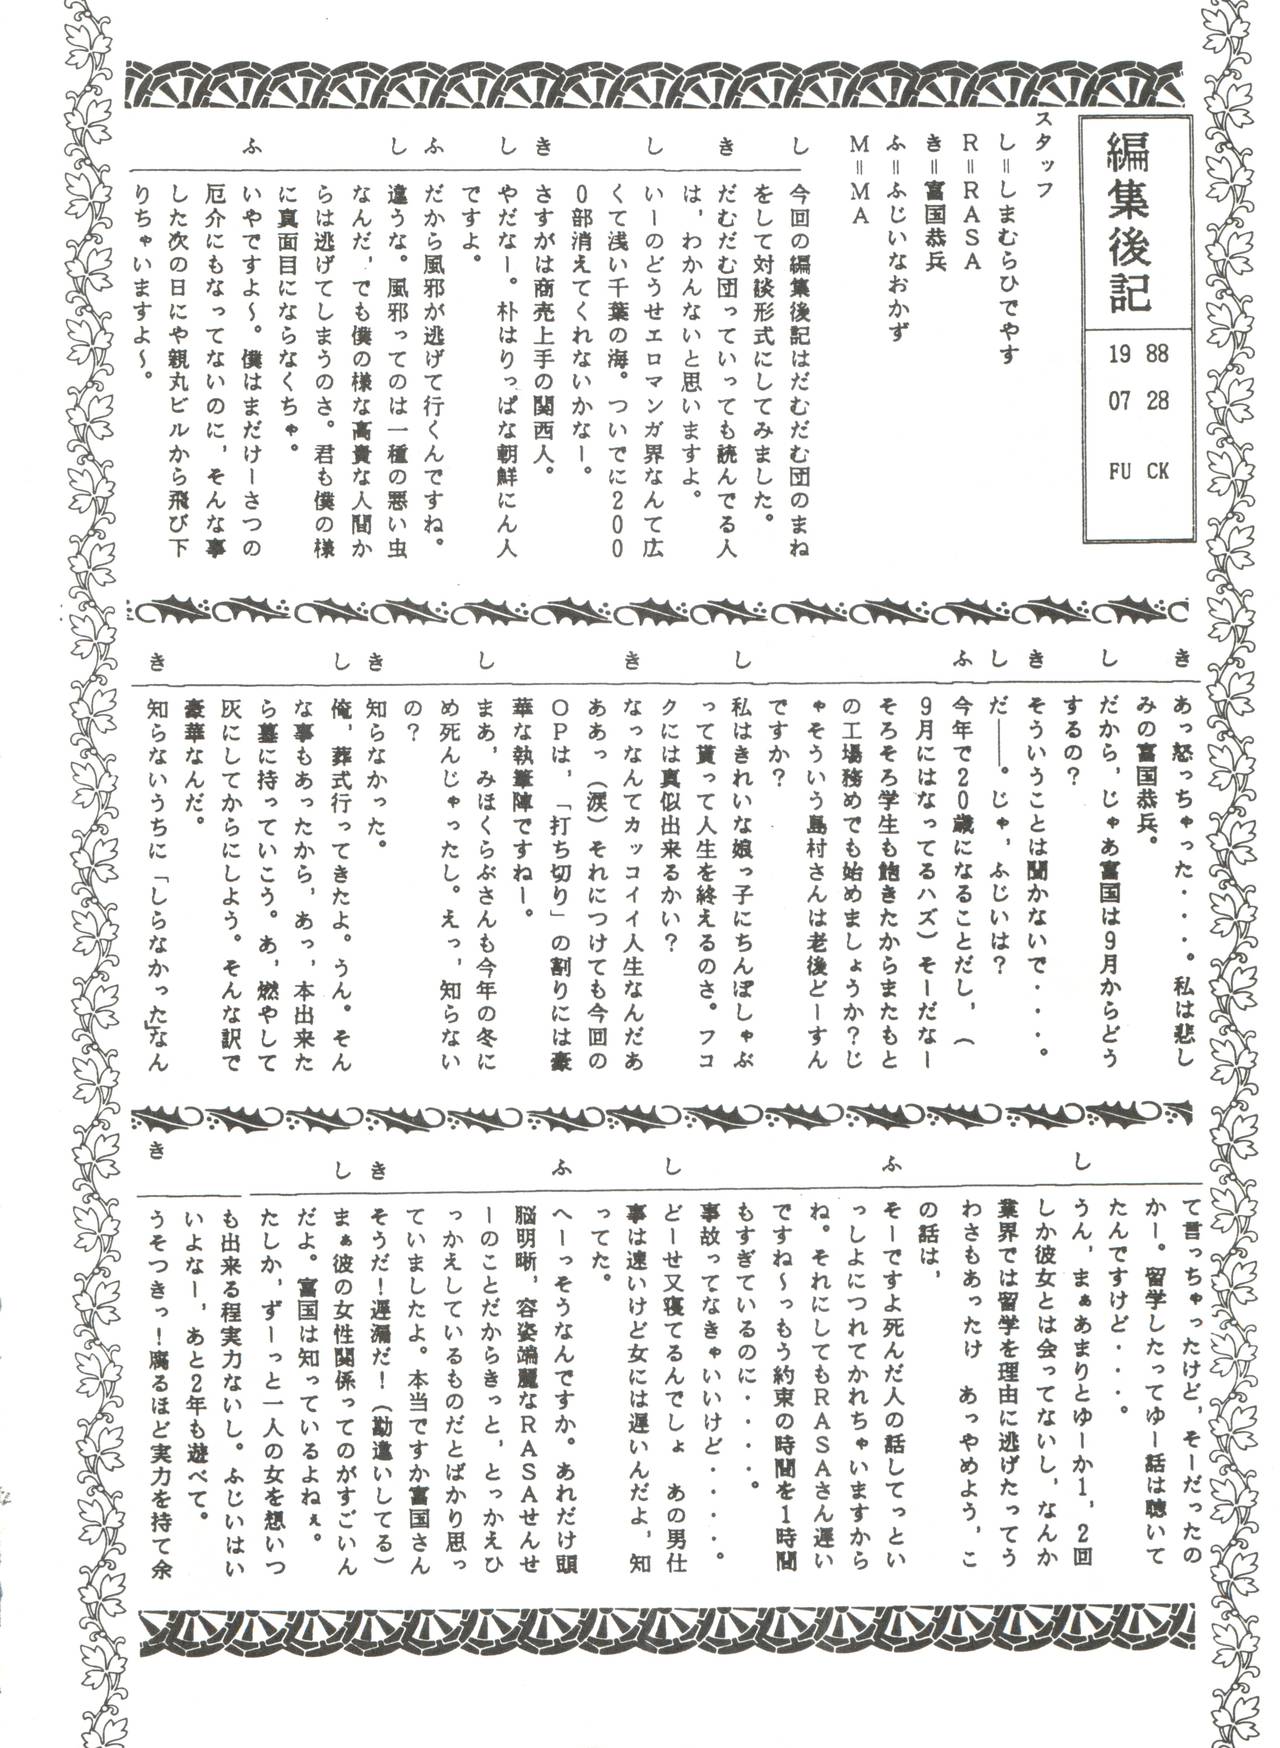 編集後記
19 88
07 28
FU CK
スタッフ
し＝しまむらひでやす
R＝RASA
き＝富国恭兵
ふ＝ふじいなおかず
M＝MA
し
今回の編集後記はだむだむ団のまね
をして対談形式にしてみました。
き
だむだむ団っていっても読んでる人
は，わかんないと思いますよ。
し
いーのどうせエロマンガ界なんて広
くて浅い千葉の海。ついでに200
0部消えてくれないかなー。
き
さすがは商売上手の関西人。
し
やだなー。朴はりっぱな朝鮮にん人
ですよ。
ふ
だから風邪が逃げて行くんですね。
し
違うな。風邪ってのは一種の悪い虫
なんだ，でも僕の様な高貴な人間か
らは逃げてしまうのさ。君も僕の様
に真面目にならなくちゃ。
ふ
いやですよ～。僕はまだけーさつの
厄介にもなってないのに，そんな事
した次の日にや親丸ビルから飛び下
りちゃいますよ～。
き
あっ怒っちゃった・・・・。私は悲し
みの富国恭兵。
し
だから，じゃあ富国は9月からどう
するの？
き
そういうことは聞かないで・・・・。
し
だ――。じゃ，ふじいは？
ふ
今年で20歳になることだし，（
9月にはなってるハズ）そーだなー
そろそろ学生も飽きたからまたもと
の工場務めでも始めましょうか？じ
ゃそういう島村さんは老後どーすん
ですか？
し
私はきれいな娘っ子にちんぽしゃぶ
って貰って人生を終えるのさ。フコ
クには真似出来るかい？
き
なっなんてカッコイイ人生なんだあ
ああっ（涙）それにつけても今回の
OPは，「打ち切り」の割りには豪
華な執筆陣ですねー。
し
まあ，みほくらぶさんも今年の冬に
め死んじゃったし。えっ，知らない
の？
き
知らなかった。
し
俺，葬式行ってきたよ。うん。そん
な事もあったから，あっ，本出来た
ら墓に持っていこう。あ，燃やして
灰にしてからにしよう。そんな訳で
豪華なんだ。
き
知らないうちに「しらなかった」なん
て言っちゃったけど，そーだったの
かー。留学したってゆー話は聴いて
たんですけど・・・・。
し
うん，まぁあまりとゆーか1，2回
しか彼女とは会ってないし，なんか
業界では留学を理由に逃げたってう
わさもあったけ　あっやめよう，こ
の話は，
ふ
そーですよ死んだ人の話してっとい
っしよにつれてかれちゃいますから
ね。それにしてもRASAさん遅い
ですね～っもう約束の時間を1時間
もすぎているのに・・・・。
事故ってなきゃいいけど・・・・。
し
どーせ又寝てるんでしょ　あの男仕
事は速いけど女には遅いんだよ，知
ってた。
ふ
へーっそうなんですか。あれだけ頭
脳明晰，容姿端麗なRASAせんせ
ーのことだからきっと，とっかえひ
っかえしているものだとばかり思っ
ていましたよ。本当ですか富国さん
き
そうだ！遅漏だ！（勘違いしてる）
し
まぁ彼の女性関係ってのがすごいん
だよ。富国は知っているよねぇ。
たしか，ずーっと一人の女を想いつ
も出来る程実力ないし。ふじいはい
いよなー，あと2年も遊べて。
き
うそつきっ！腐るほど実力を持て余